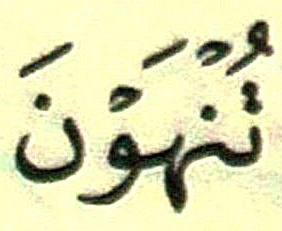 تُنْهَوْنَ